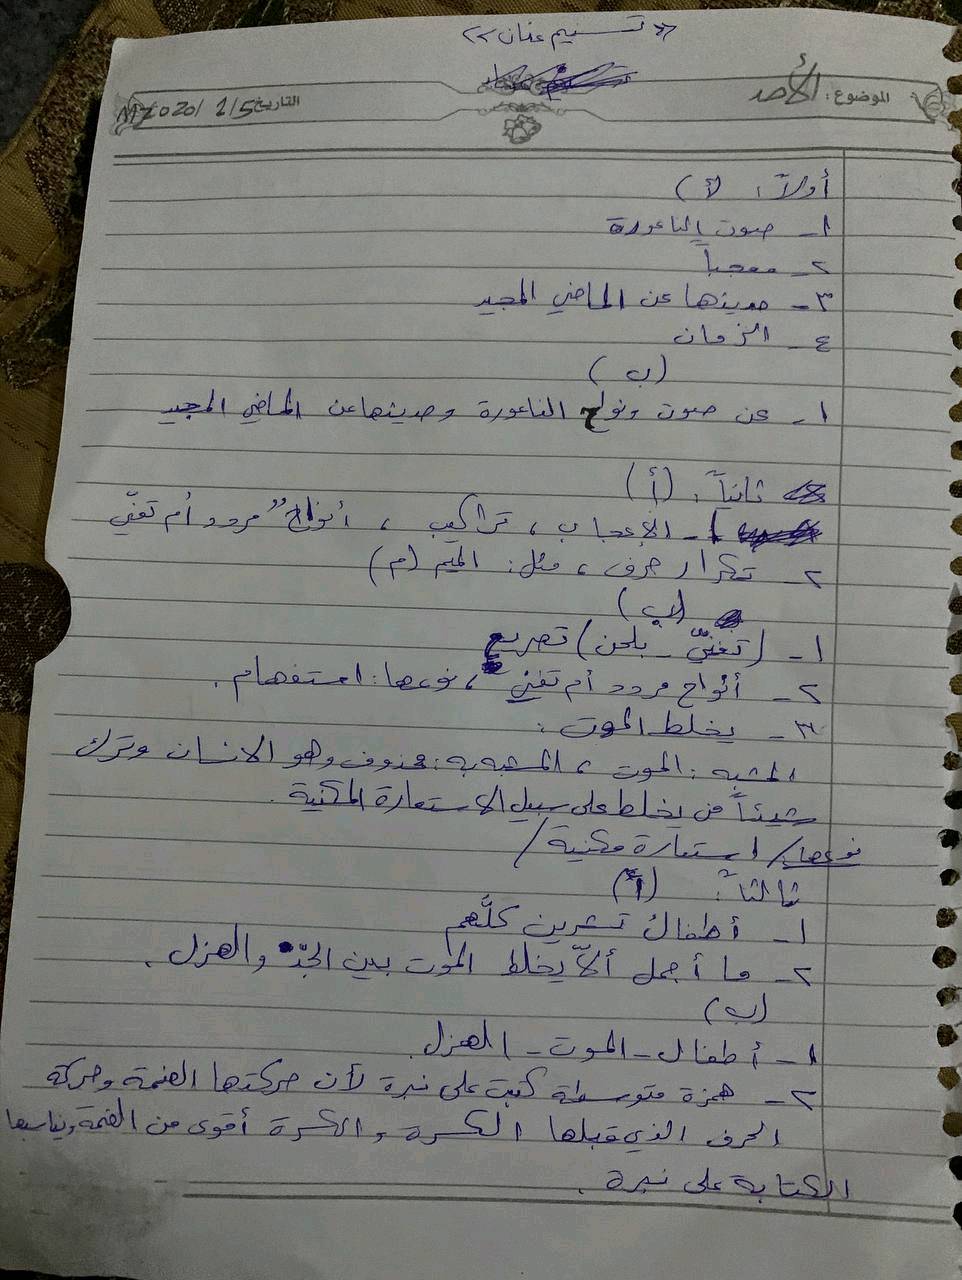 «تسنيم عنان»
الموضوع: الأحد
التاريخ 2/5/2020م
أولاً: (أ)
١- صوت الناعورة
٢- معجباً
٣- حديثها عن الماضي المجيد
٤- الزمان
(ب)
١- عن صوت ونواح الناعورة وحديثها عن الماضي المجيد
ثانياً: (أ)
١- الإعجاب، تراكيب، أنواح مردد أم تغنّي
٢- تكرار حرف، مثل: الميم (م)
(ب)
١- (تغنّي - بلحن) تصريع
٢- أنواح مردد أم تغني، نوعها: استفهام.
٣- يخلط الموت:
المشبه: الموت، المشبه به: محذوف وهو الانسان وترك
شيئاً من يخلط على سبيل الاستعارة المكنية.
نوعها/ استعارة مكنية/
ثالثاً: (أ)
١- أطفالُ تشرين كلَّهم
٢- ما أجمل ألاّ يخلط الموت بين الجدّ والهزل.
(ب)
١- أطفال - الموت - الهزل.
٢- همزة متوسطة كتبت على نبرة لأن حركتها الضمة وحركة
الحرف الذي قبلها الكسرة والكسرة أقوى من الضمة ويناسبها
الكتابة على نبرة.